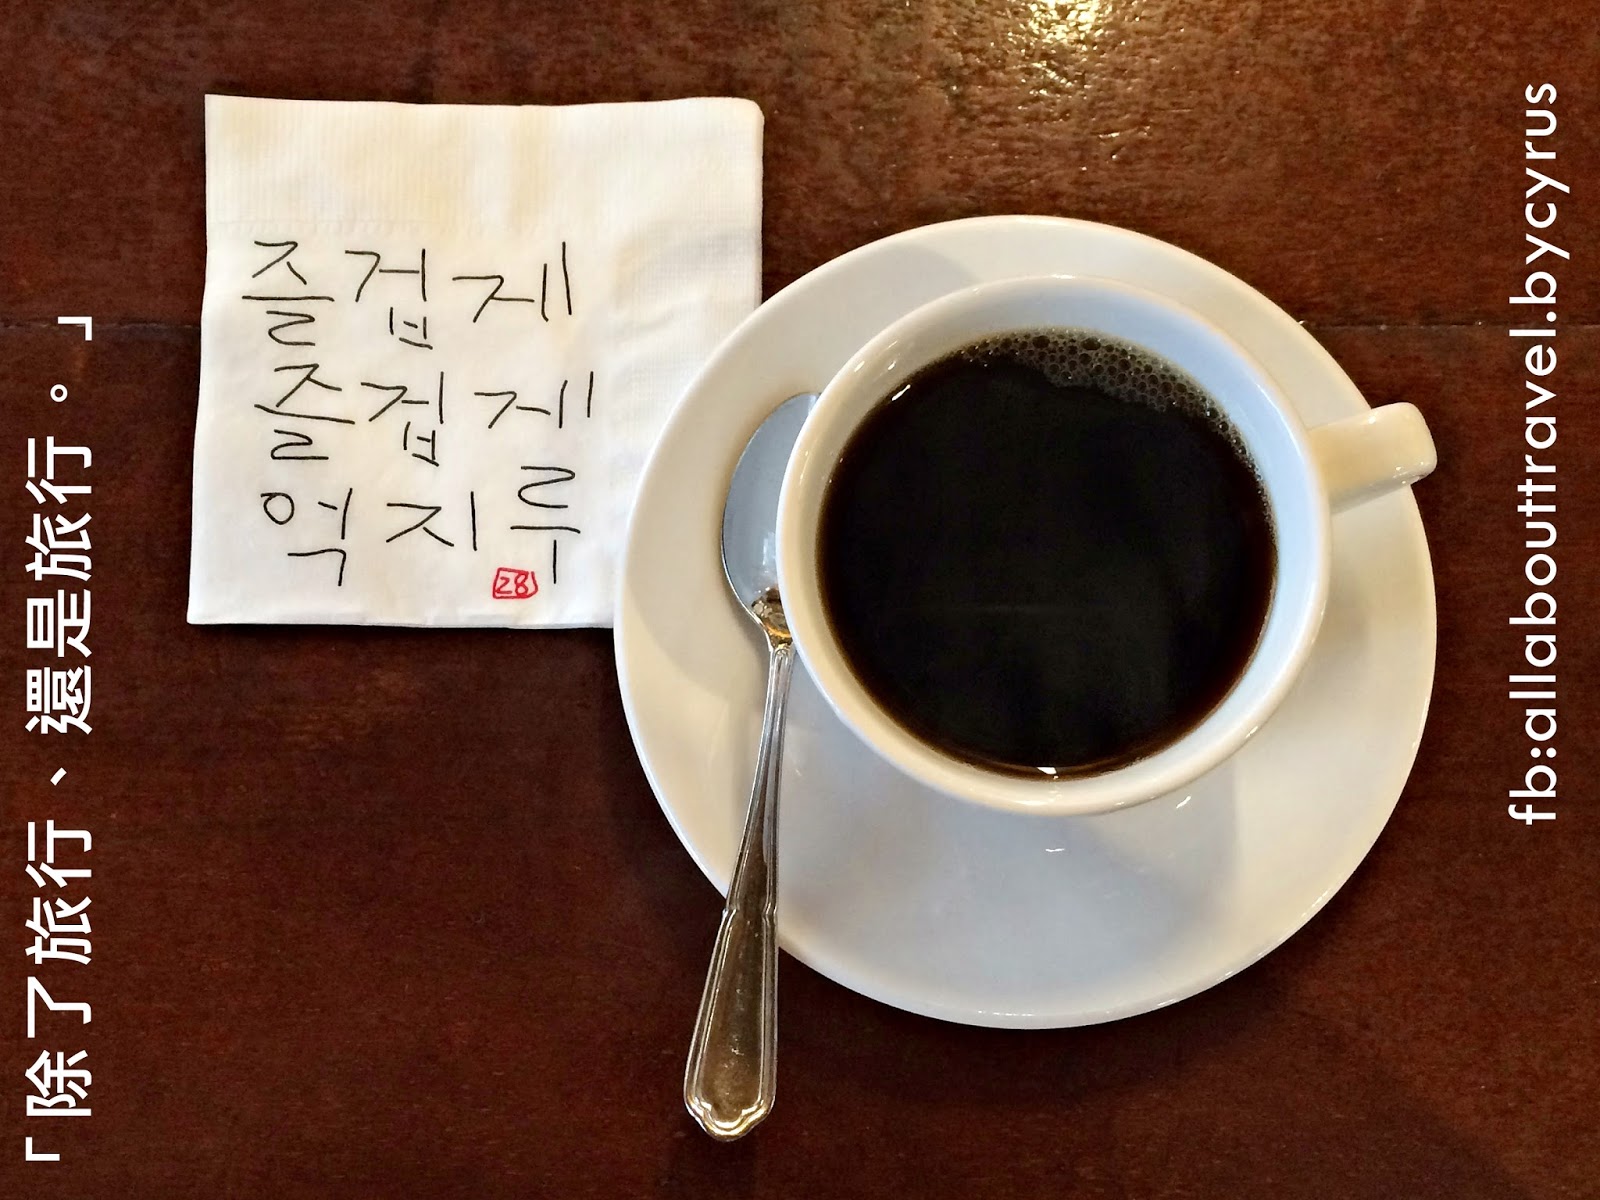 즐겁제
즐겁제
억지루
28
「除了旅行、還是旅行。」
fb:allabouttravel.bycyrus